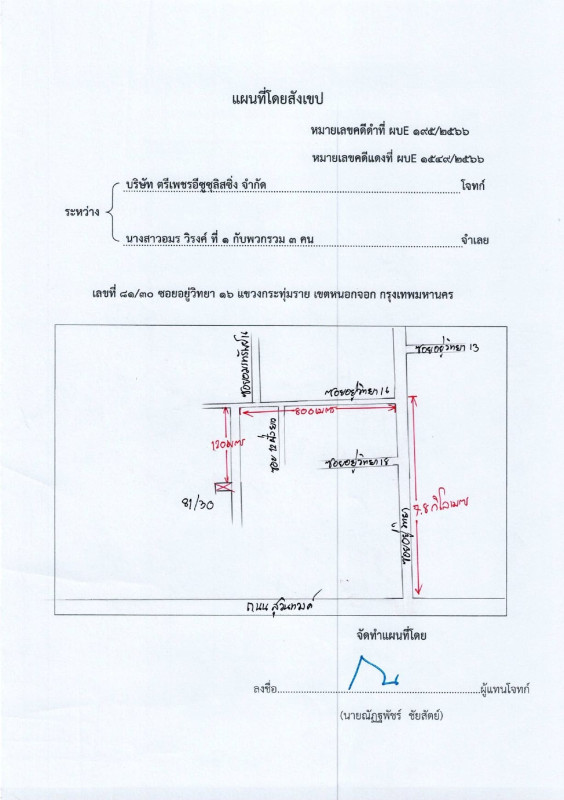 แผนที่โดยสังเขป
หมายเลขคดีดำที่ ผบE ๑๙๕/๒๕๖๖
หมายเลขคดีแดงที่ ผบE ๑๕๔๙/๒๕๖๖
บริษัท ตรีเพชรอีซูซุลิสซิ่ง จำกัด โจทก์
ระหว่าง
นางสาวอมร วิรงค์ ที่ ๑ กับพวกรวม ๓ คน จำเลย
เลขที่ ๘๑/๓๐ ซอยอยู่วิทยา ๑๖ แขวงกระทุ่มราย เขตหนอกจอก กรุงเทพมหานคร
ซอยอยู่วิทยา 13
ซอยอยู่วิทยา 16
800 เมตร
120 เมตร
ซอยอยู่วิทยา 18
81/30
7.8 กิโลเมตร
ถนน สุวินทวงศ์
จัดทำแผนที่โดย
ลงชื่อ ผู้แทนโจทก์
(นายณัฏฐพัชร์ ชัยสัตย์)